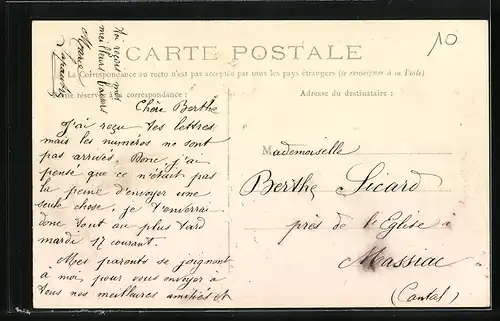 CARTE POSTALE
10
La Correspondance au recto n'est pas acceptée par tous les pays étrangers (se renseigner à la Poste)
réservée à la correspondance :
Adresse du destinataire :
Chère Berthe
J'ai reçu tes lettres
mais les numeros ne sont
pas arrivés. Donc j'ai
pensé que ce n'était pas
la peine d'envoyer une
seule chose, je t'enverrai
donc tout au plus tard
mardi 17 courant.
Mes parents se joignent
à moi pour vous envoyer à
tous nos meilleures amitiés et
Mademoiselle
Berthe Sicard
près de l'Eglise à
Massiac
(Cantal)
meilleurs baisers